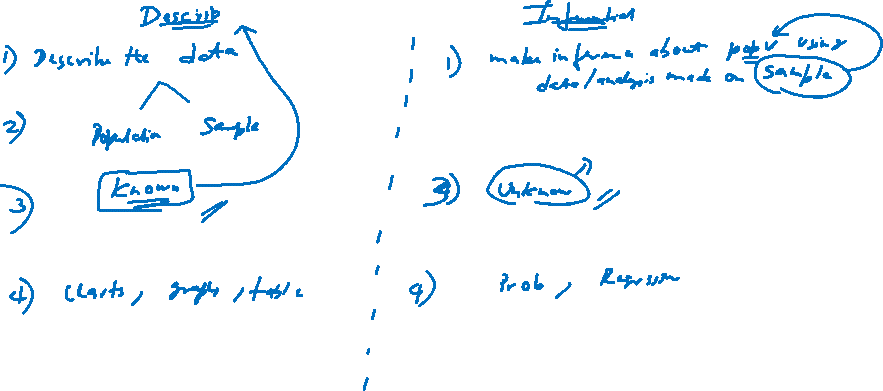 Describ
1) Describe the data
2) Population Sample
3) Known
4) Charts, graphs, table
Inferential
1) make inference about popu using
data/analysis made on Sample
3) Unknown
4) Prob, Regression